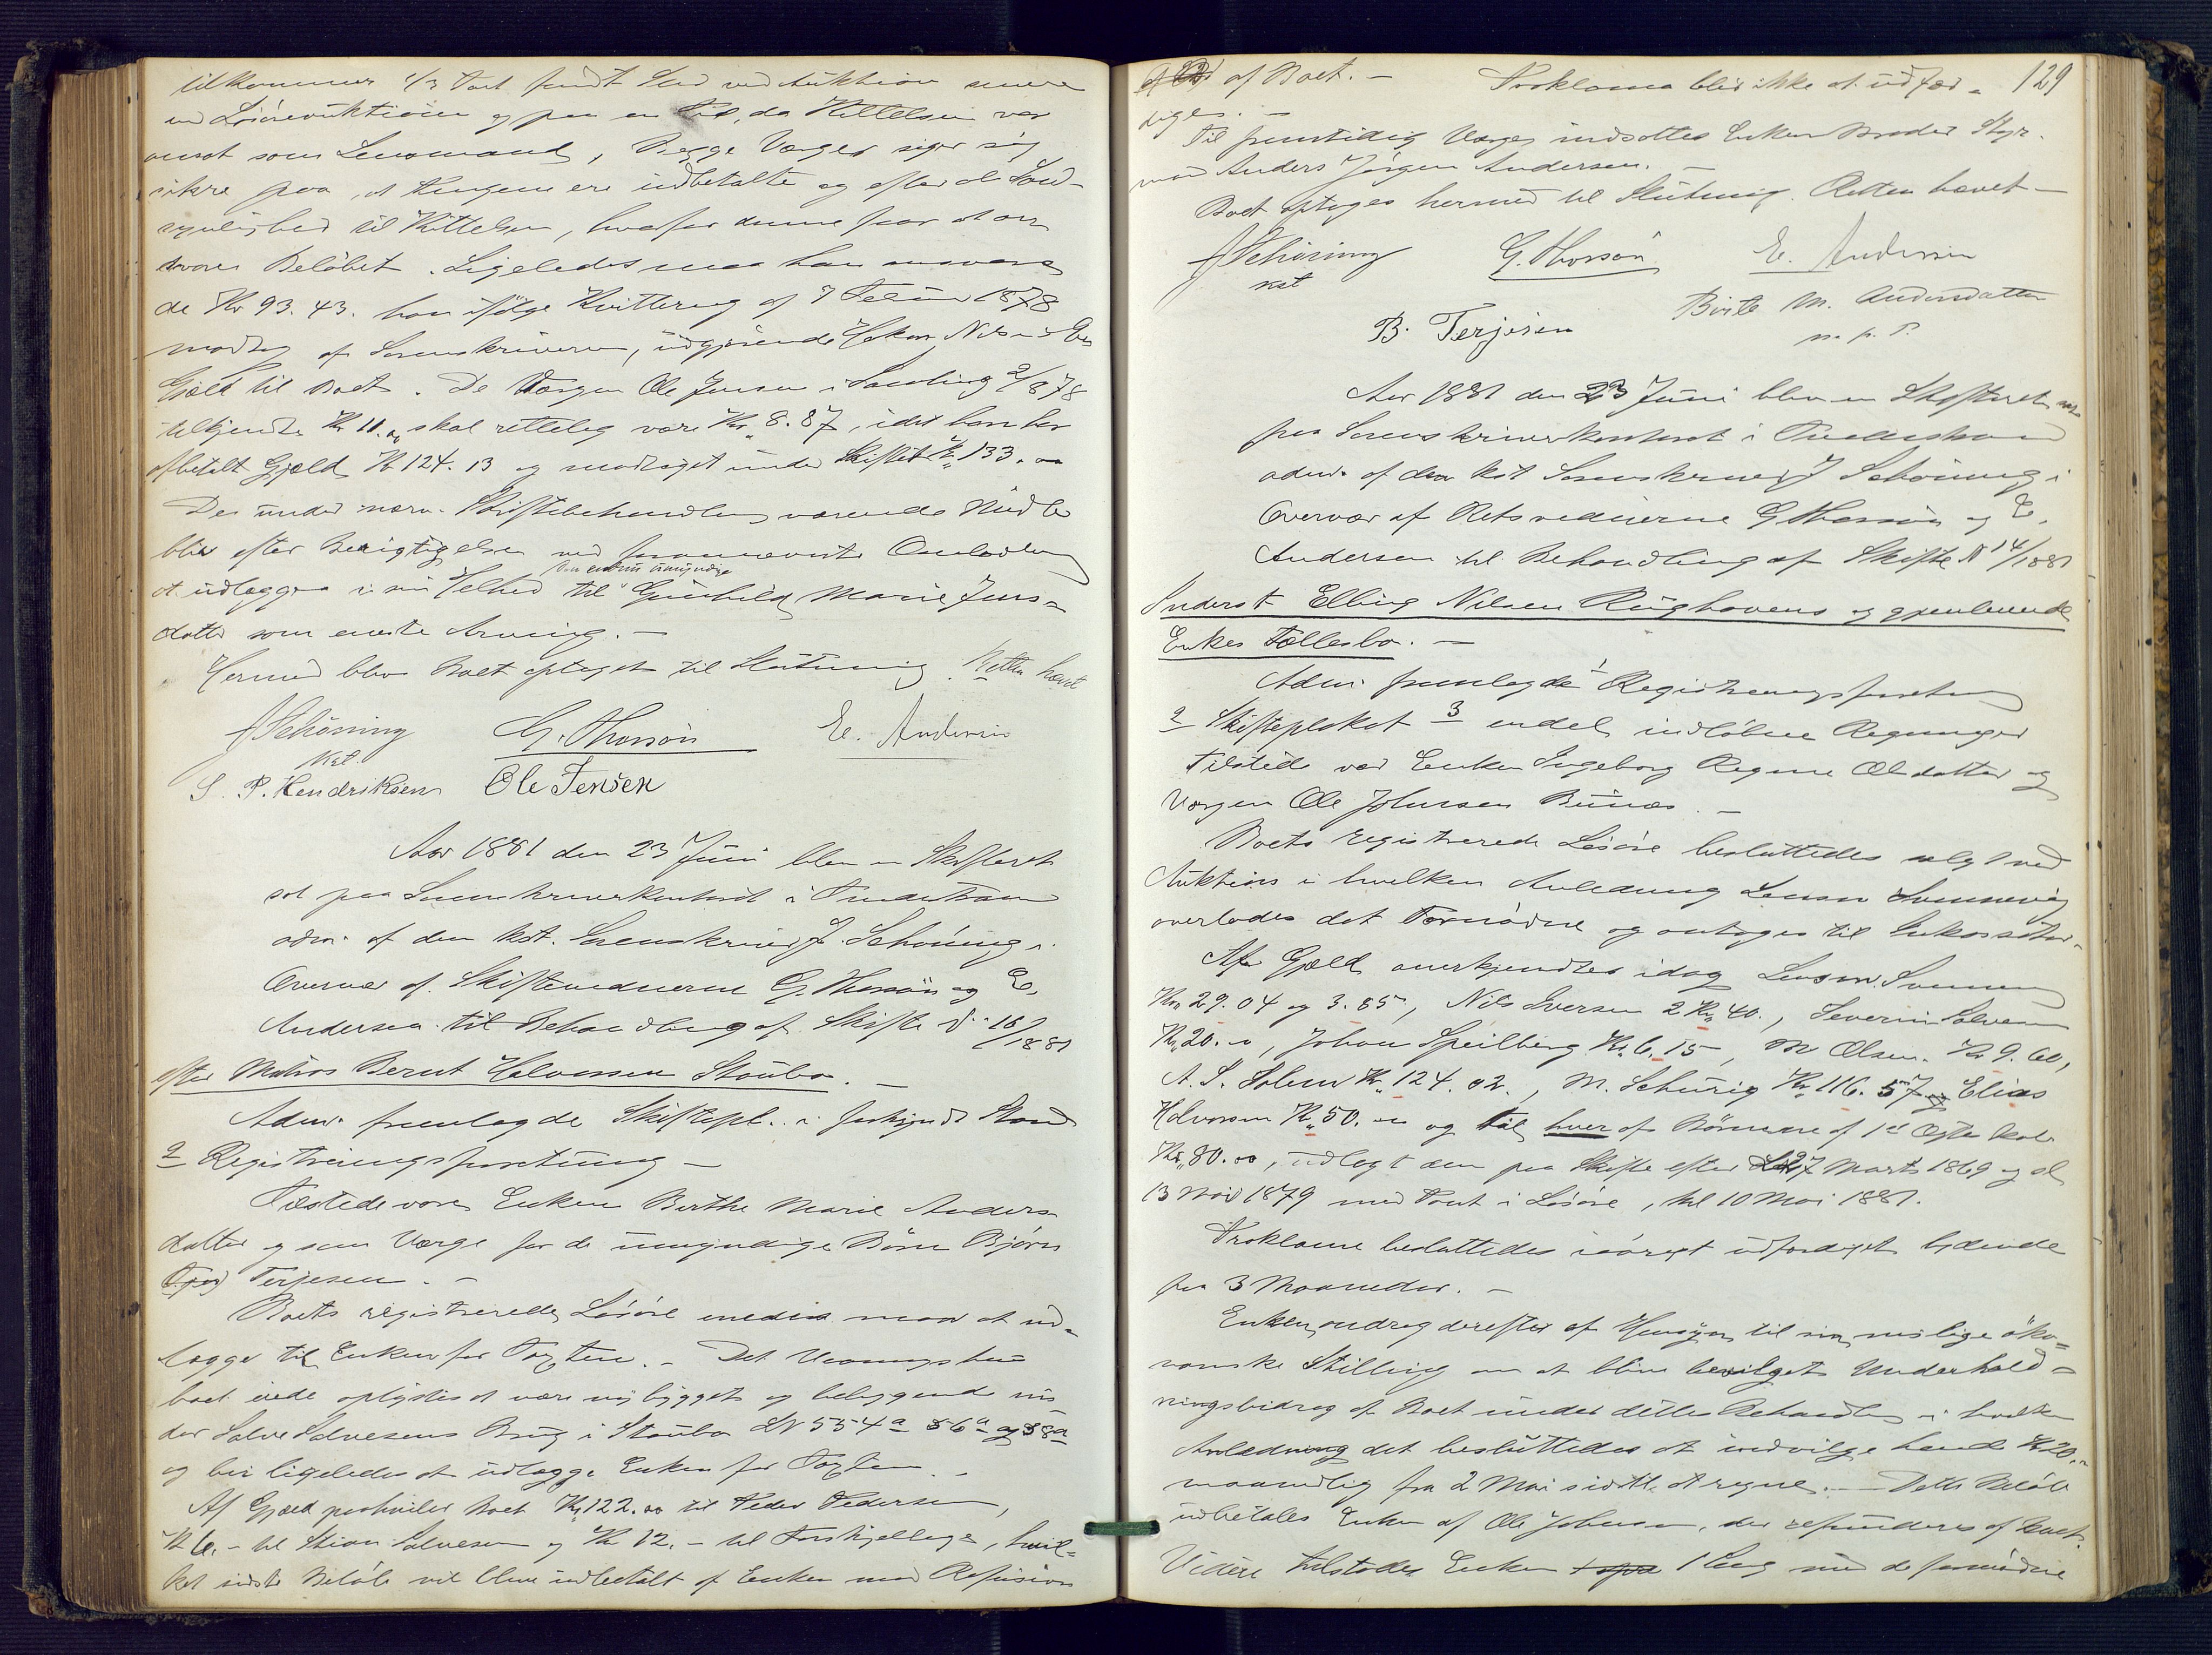 tilkommer 1/3 Part fandt Sted ved Auktion senere
end Løsøreauktionen og paa en Tid, da Kittelsen var
ansat som Lensmand, Begge Værger siger sig
sikre paa, at Pengene ere indbetalte og efter al Sand-
synlighed til Kittelsen, hvorfor denne faar at an
svare Beløbet. Ligeledes maa han ansvare
de Kr 93. 43. han ifølge Kvittering af 7 Februar 1878
modtog af Sorenskriveren, udgjørende Nils
Gjæld til Boet. De Værgen Ole Jensen i Samling 2/8 78
tilkjendte Kr 11.00 skal rettelig være Kr. 8. 87, idet han har
afbetalt Gjæld Kr 124. 13 og modtaget under Skiftet Kr. 133. 00
Det under nærv. Skiftebehandling værende Midler
bliver efter Berigtigelse ved Omlodning
den endnu umyndige
at udlægges i sin Helhed til Gunhild Marie Jens-
datter som eneste Arving. —
Hermed blev Boet optaget til Slutning. Retten hævet
J Schöning G. Thorsön E. Andersen
kst.
S. P. Hendriksen Ole Jensen
Aar 1881 den 23 Juni blev en Skifteret
sat paa Sorenskriverkontoret i Tvedestrand
adm. af den kst. Sorenskriver J. Schöning i
Overvær af Skiftevidnerne G. Thorsön og E.
Andersen til Behandling af Skifte N. 16/1881
efter Matros Bernt Halvorsen Stoubo. —
Adm. fremlagde Skiftepl. i forkyndt Stand
2 Registreringsforretning —
Tilstede vare Enken Birthe Marie Anders
datter og som Værge for de umyndige Børn Bjørn
Terjesen. —
Boets registrerede Løsøre enedes man at ud-
lægge til Enken for Taxten. — Det Vaaningshus
boet eiede oplystes at være nybygget og beliggende un
der Salve Salvesens Brug i Stoubo LN 554a 56a og 58a
og bør ligeledes at udlægge Enken for Taxten. —
Af Gjæld paahviler Boet Kr. 122.00 til Peder Pedersen,
Kr 6. — til Stian Salvesen og Kr 12. — til Forskjellige, hvil-
ket sidste Beløb vil blive indbetalt af Enken mod Refusion
af Boet. — Proklama blir ikke at udfær- 129
diges. —
Til fremtidig Værge indsattes Enkens Broder Styr-
mand Anders Jørgen Andersen. —
Boet optages hermed til Slutning. Retten hævet —
J Schöning G. Thorsön E. Andersen
kst
B. Terjesen Birte M. Andersdatter
m. p. P.
Aar 1881 den 23 Juni blev en Skifteret sat
paa Sorenskriverkontoret i Tvedestrand
adm. af den kst Sorenskriver J Schöning i
Overvær af Retsvidnerne G Thorsön og E.
Andersen til Behandling af Skifte N 14/1881
Inderst Elling Nilsen Rughavens og gjenlevende
Enkes Fællesbo. —
Adm. fremlagde 1 Registreringsforretning
2 Skifteplakat 3 endel indløbne Regninger
Tilstede var Enken Ingeborg Regine Olsdatter og
Værgen Ole Johnsen Bunæs. —
Boets registrerede Løsøre besluttedes solgt ved
Auktion i hvilken Anledning Lensm Svennevig
overlodes det Fornødne og antoges til Inkassator.
Af Gjæld anerkjendtes idag Lensm. Svennevig
Kr. 29. 04 og 3. 85, Nils Iversen 2 Kr. 40., Severin Salvesen
Kr. 20.00, Johan Speilberg Kr. 6. 15, M Olsen. Kr 9. 60,
A. S. Solem Kr. 124. 02., M. Schurig Kr. 116. 57 Elias
Halvorsen Kr. 50. 00 og til hver af Børnene af 1ste Ægteskab
Kr. 80.00, udlagt dem paa Skifte efter 27 Marts 1869 og al
13 Mai 1879 med Pant i Løsøre, til 10 Mai 1881.
Proklama besluttedes iøvrigt udfærdiget lydende
paa 3 Maaneder. —
Enken androg derefter af Hensyn til sin mislige øko-
nomiske Stilling om at blive bevilget Underhold-
ningsbidrag af Boet under dettes Behandling i hvilken
Anledning det besluttedes at indvilge hende Kr 20.00
maanedlig fra 2 Mai sidstl. at regne. — Dette Beløb
udbetales Enken af Ole Johnsen, der refunderes af Boet.
Videre tilstodes Enken 1 Seng med de fornødne